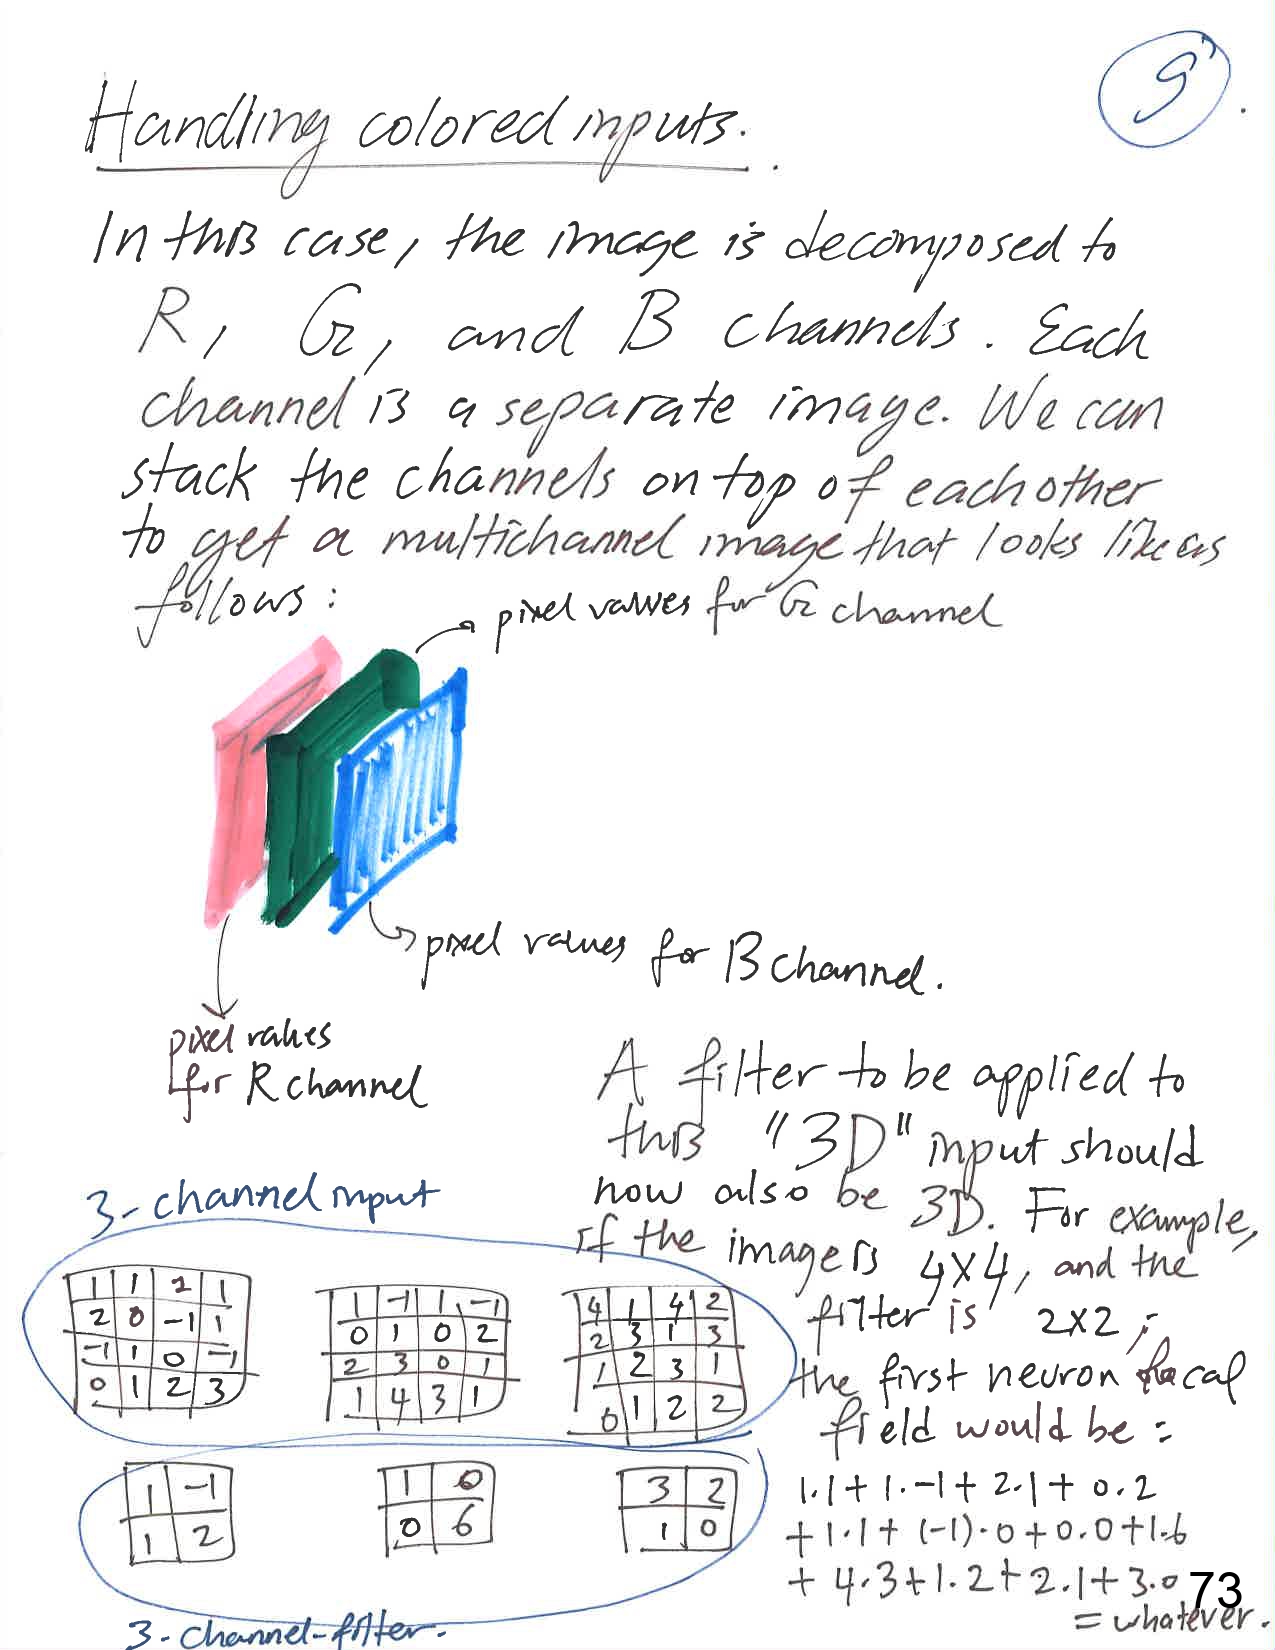 9
Handling colored inputs.
In this case, the image is decomposed to
R, G, and B channels. Each
channel is a separate image. We can
stack the channels on top of each other
to get a multichannel image that looks like as
follows:
pixel values for G channel
pixel values for B channel.
pixel values
for R channel
A filter to be applied to
this "3D" input should
now also be 3D. For example,
if the image is 4x4, and the
filter is 2x2,
the first neuron local
field would be:
1.1+1.-1+2.1+0.2
+1.1+(-1).0+0.0+1.6
+4.3+1.2+2.1+3.0
= whatever.
3-channel input
1 1 2 1
2 0 -1 1
-1 1 0 -1
0 1 2 3
1 -1 1 -1
0 1 0 2
2 3 0 1
1 4 3 1
4 1 4 2
2 3 1 3
1 2 3 1
0 1 2 2
1 -1
1 2
1 0
0 6
3 2
1 0
3-channel-filter.
73